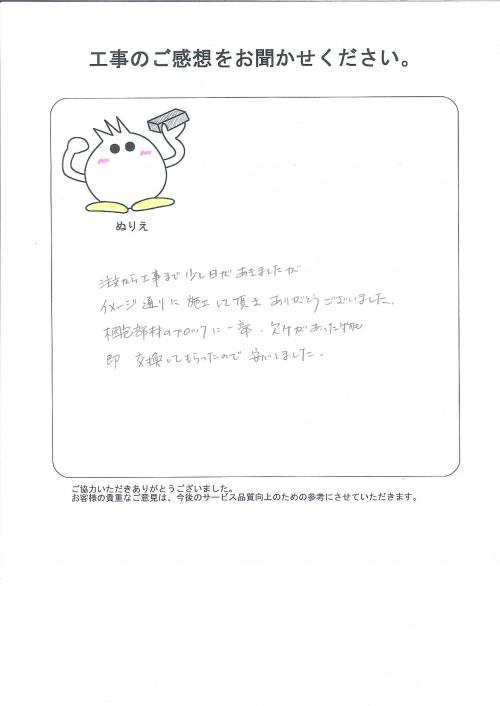 工事のご感想をお聞かせください。
ぬりえ
注文から工事まで少し日があきましたが
イメージ通りに施工して頂き ありがとうございました。
梱包部材のブロックに一部、欠けがあった物も
即 交換してもらったので 安心しました。
ご協力いただきありがとうございました。
お客様の貴重なご意見は、今後のサービス品質向上のための参考にさせていただきます。